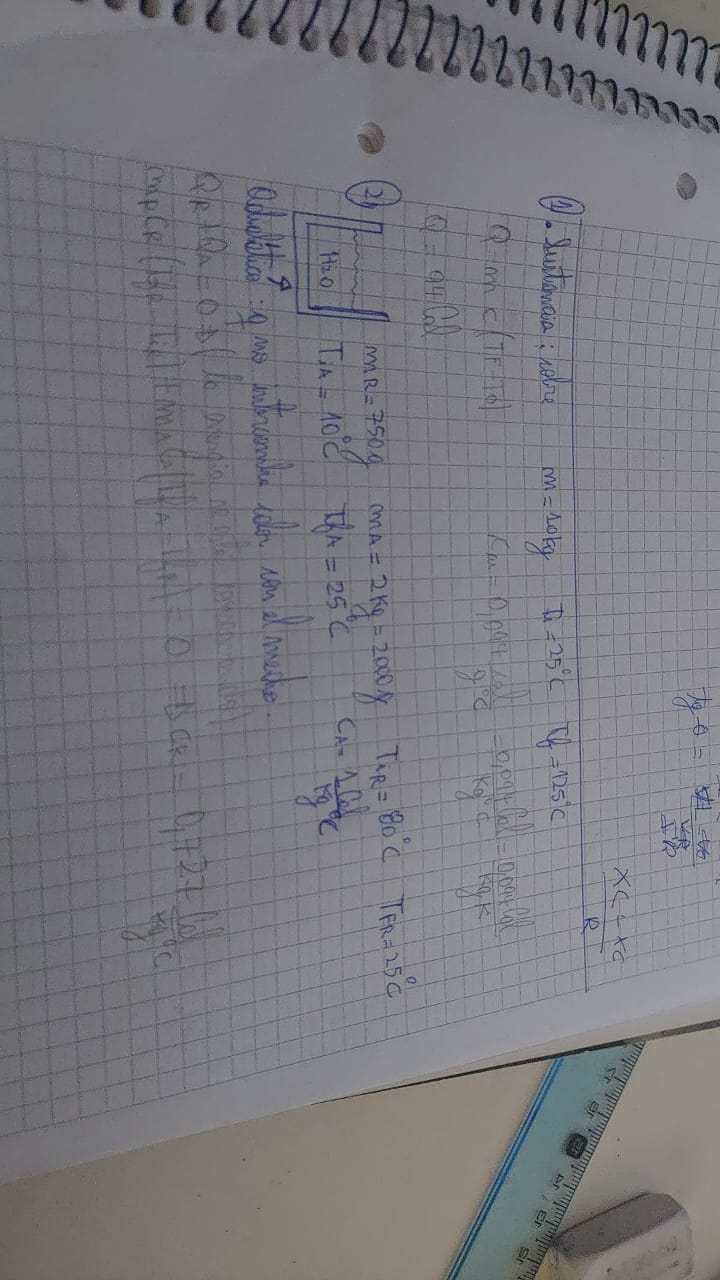 tg θ =
XC - XC
R
1) . Sustancia: cobre m = 10 kg Ti = 25°C Tf = 125°C
Q = m c (TF - T0) Ccu = 0,094 cal/g°C = 0,094 Cal/Kg°C = 0,094 Cal/Kg K
Q = 94 Cal
2) mR = 750 g mA = 2 Kg = 2000 g TiR = 80°C TFR = 25°C
H2O TiA = 10°C TfA = 25°C CA = 1 Cal/Kg°C
Adiabático: q no intercambia calor con el medio.
QR + QA = 0 → (la energía
mR CR (TfR - TiR) + mA CA (TfA - = 0 → CR = 0,727 Cal/Kg°C